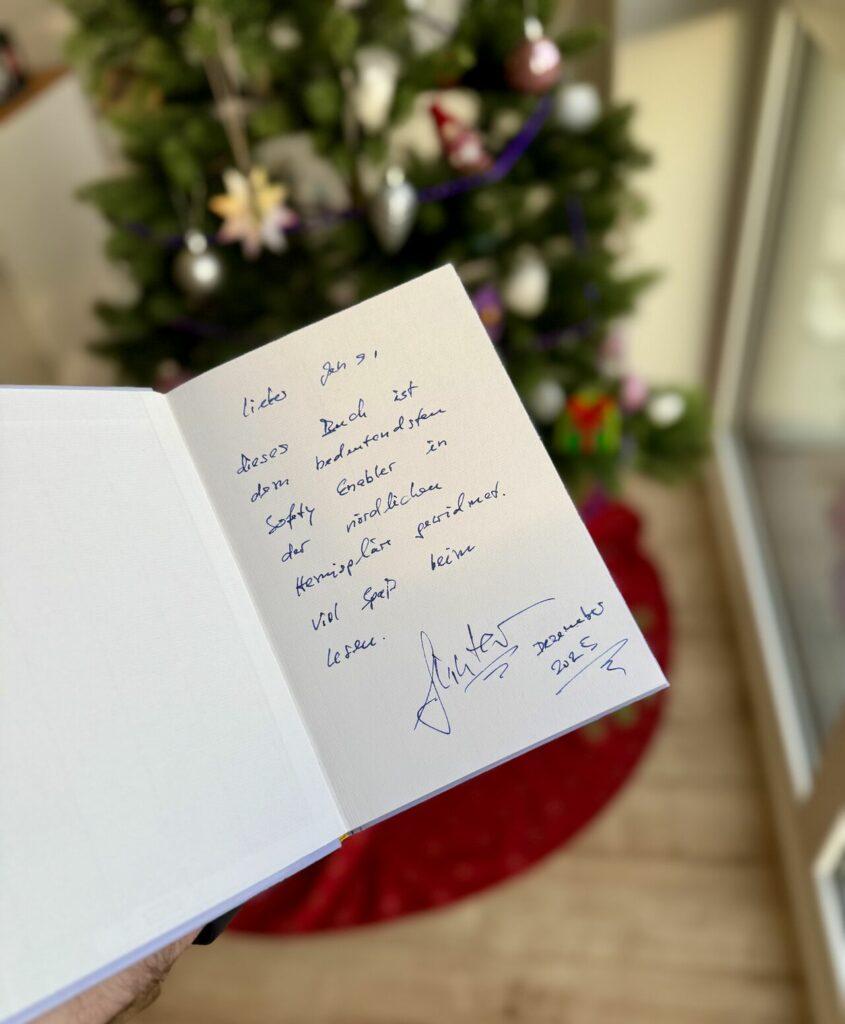 Lieber Jens,
dieses Buch ist
dem bedeutendsten
Safety Enabler in
der nördlichen
Hemispläre gewidmet.
Viel Spaß beim
Lesen.
Dezember
2025